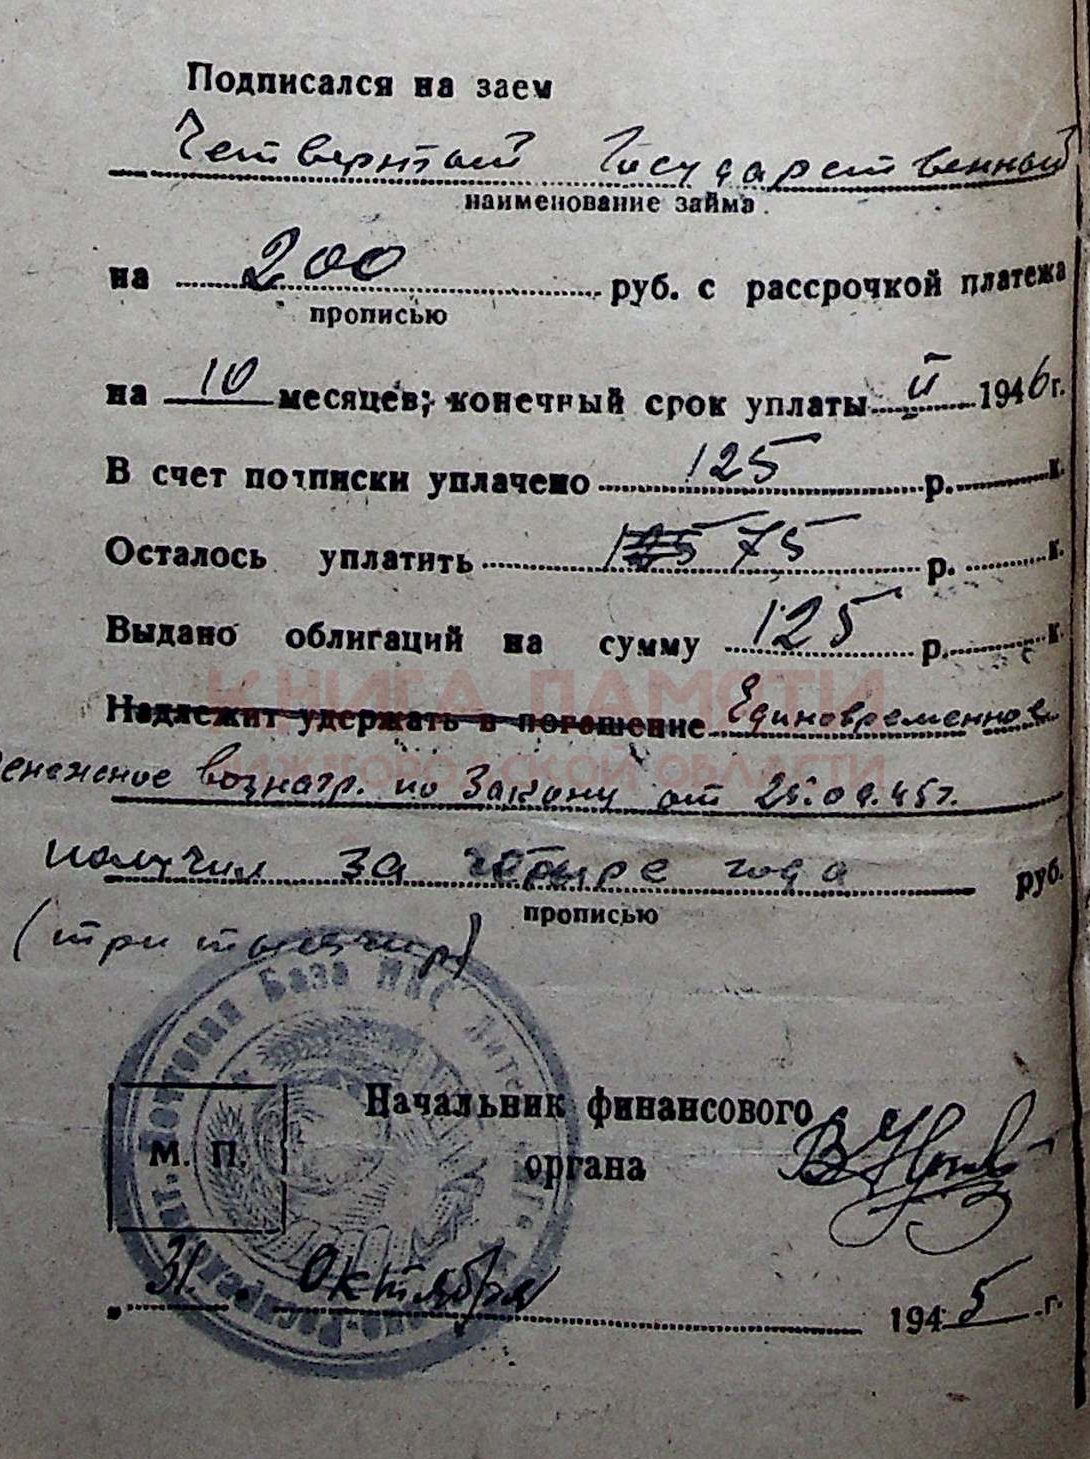 Подписался на заем
Четвертый Государственный
наименование займа
на 200 руб. с рассрочкой платежа
прописью
на 10 месяцев; конечный срок уплаты II 1946 г.
В счет подписки уплачено 125 р. к.
Осталось уплатить 75 р. к.
Выдано облигаций на сумму 125 р. к.
КНИГА ПАМЯТИ
Надлежит удержать в погашение Единовременное
НИЖЕГОРОДСКОЙ ОБЛАСТИ
денежное вознагр. по Закону от 25.09.45г.
получил за четыре года руб.
прописью
(три тысячи р)
База
Начальник финансового
М. П.
органа
31. Октября 1945 г.